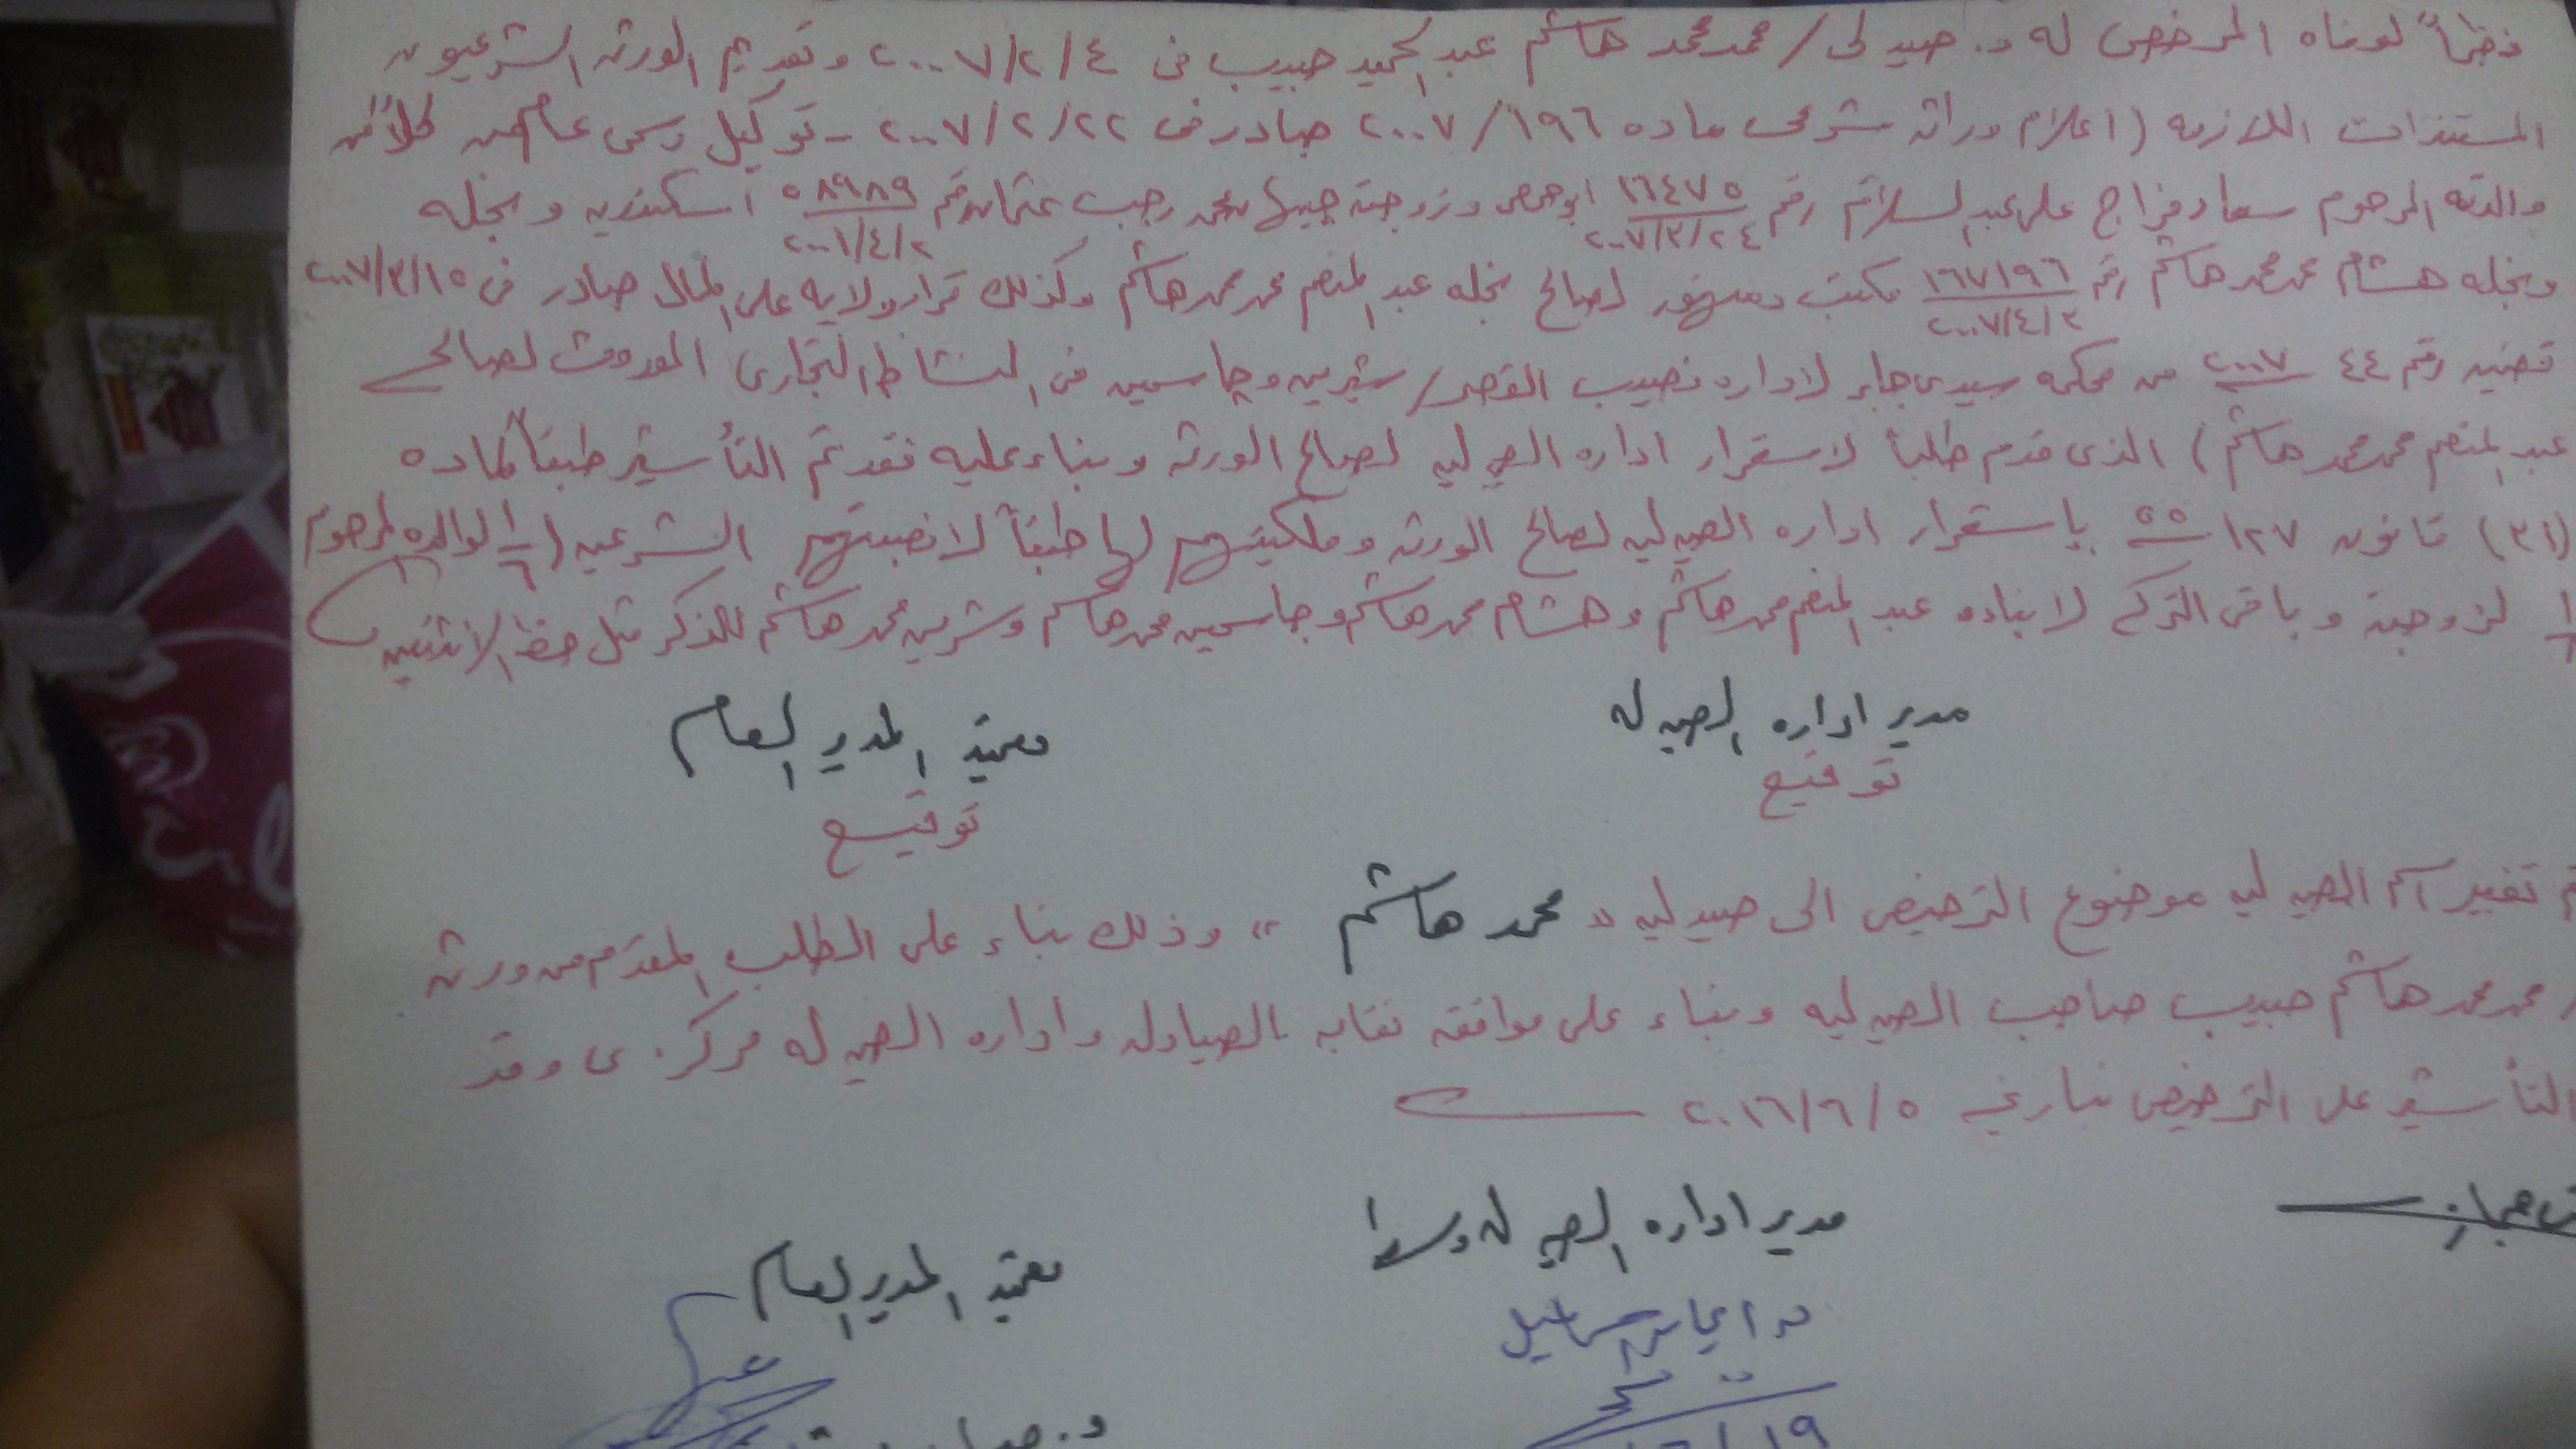 نظراً لوفاه المرخص له د. صيدلى / محمد محمد هاشم عبد الحميد حبيب فى ٢٠٠٧/٢/٤ وتقديم الورثه الشرعيون
المستندات اللازمه (اعلام وراثه شرعى ماده ٢٠٠٧/١٩٦ صادر فى ٢٠٠٧/٢/٢٢ - توكيل رسمى عام من كلاً من
والدته المرحوم سعاد فراج على عبد السلام رقم ١٦٤٧٥ / ٢٠٠٧/٣/٢٤ ابوحمص وزوجته جيهان محمد رجب عثمان رقم ٨٩٨٩٥ / ٢٠٠١/٤/٢ اسكندريه ونجله
ونجله هشام محمد محمد هاشم رقم ١٦٧١٩٦ / ٢٠٠٧/٤/٢ مكتب دمنهور لصالح نجله عبد المنعم محمد محمد هاشم وكذلك قرار ولايه على المال صادر فى ٢٠٠٧/٣/١٥
قضيه رقم ٤٤ ٢٠٠٧ من محكمه سيدى جابر لاداره نصيب القصر / شيرين وجاسمين فى النشاط التجارى الموروث لصالح
عبد المنعم محمد محمد هاشم) الذى قدم طلباً لاستمرار اداره الصيدليه لصالح الورثه وبناء عليه فقد تم التأشير طبقاً لماده
(٣١) قانون ١٢٧ ٥٥ بإستمرار اداره الصيدليه لصالح الورثه وملكيتهم لها طبقاً لانصبتهم الشرعيه (١/٦ لوالده المرحوم
لزوجته وباقى التركه لابناءه عبد المنعم محمد هاشم وهشام محمد هاشم وجاسمين محمد هاشم وشرين محمد هاشم للذكر مثل حظ الانثيين)
مدير اداره الصيدله
معتمد المدير العام
توقيع
توقيع
تم تغيير اسم الصيدليه موضوع الترخيص الى صيدليه " محمد هاشم " وذلك بناء على الطلب المقدم من ورثه
محمد محمد هاشم حبيب صاحب الصيدليه وبناء على موافقه نقابه الصيادله واداره الصيدله مركزى وقد
التأشير على الترخيص بتاريخ ٢٠١٦/٦/٥
مدير اداره الصيدله
معتمد المدير العام